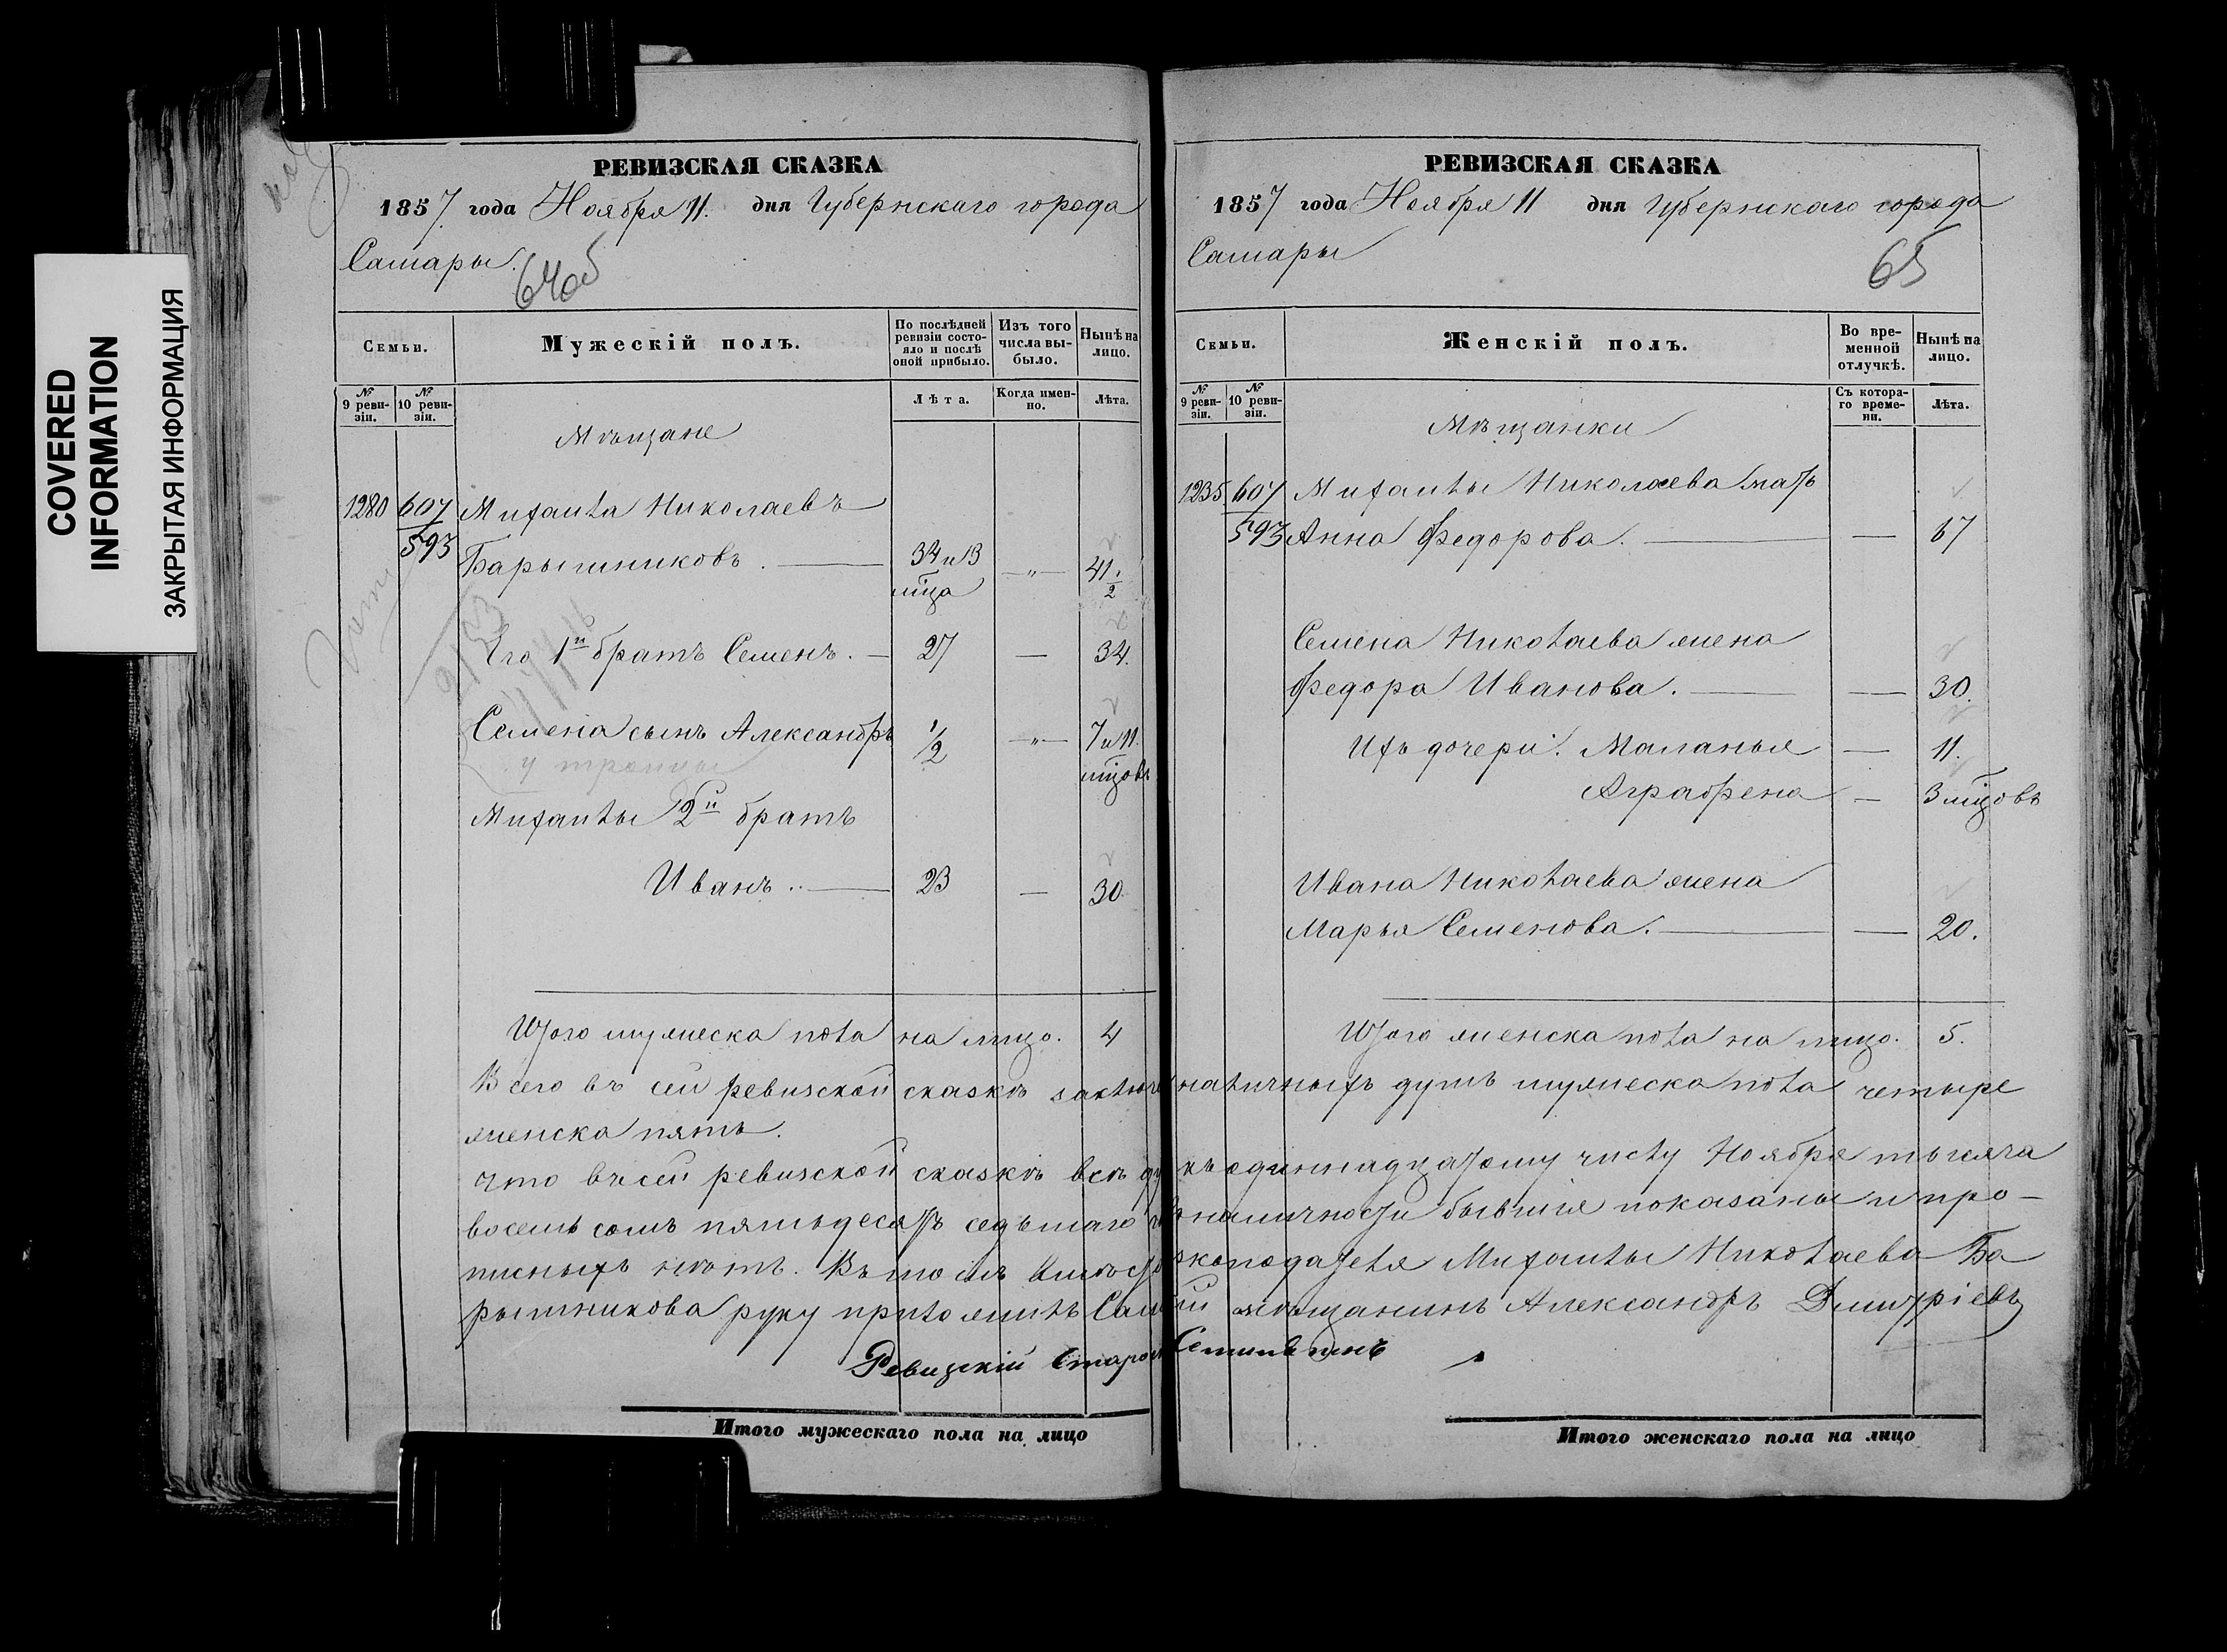 COVERED
INFORMATION
ЗАКРЫТАЯ ИНФОРМАЦИЯ
РЕВИЗСКАЯ СКАЗКА
1857 года Ноября 11. дня Губернскаго города
Самары.
64об
Семьи.
Мужескій полъ.
По послѣдней ревизіи состояло и послѣ оной прибыло.
Изъ того числа выбыло.
Нынѣ на лицо.
№ 9 ревизіи.
№ 10 ревизіи.
Лѣта.
Когда именно.
Лѣта.
Мѣщане
1280 607 Михаила Николаевъ
593 Барышниковъ. — 34 и 3 мца —"— 41 1/2
Его 1й братъ Семенъ. — 27 — 34.
Семена сынъ Александръ 1/2 —"— 7 и 11. мцовъ
Михаилы 2й братъ
Иванъ.. — 23 — 30
Итого мужеска пола на лицо. 4
Всего въ сей ревизской сказкѣ заключ
женска пять.
Что въ сей ревизской сказкѣ всѣ ду
восемь сотъ пятьдесятъ седьмаго
писныхъ нѣтъ. Въ томъ вмѣсто
рышникова руку приложилъ Сам
Ревизскій Старо
Итого мужескаго пола на лицо
РЕВИЗСКАЯ СКАЗКА
1857 года Ноября 11 дня Губернскаго города
Самары
65
Семьи.
Женскій полъ.
Во временной отлучкѣ.
Нынѣ на лицо.
№ 9 ревизіи.
№ 10 ревизіи.
Съ котораго времени.
Лѣта.
Мѣщанки
1235. 607 Михаилы Николаева мать
593 Анна Федорова. — — 67
Семена Николаева жена
Федора Иванова. — — 30.
Ихъ дочери: Маланья — 11.
Аграфена — 3 мцовъ
Ивана Николаева жена
Марья Семенова. — — 20.
Итого женска пола на лицо. 5.
наличныхъ душъ мужеска пола четыре
къ одиннадцатому числу Ноября тысяча
наличности бывшія показаны и про-
скоподателя Михаилы Николаева Ба
ій мѣщанинъ Александръ Дмитріевъ
Итого женскаго пола на лицо